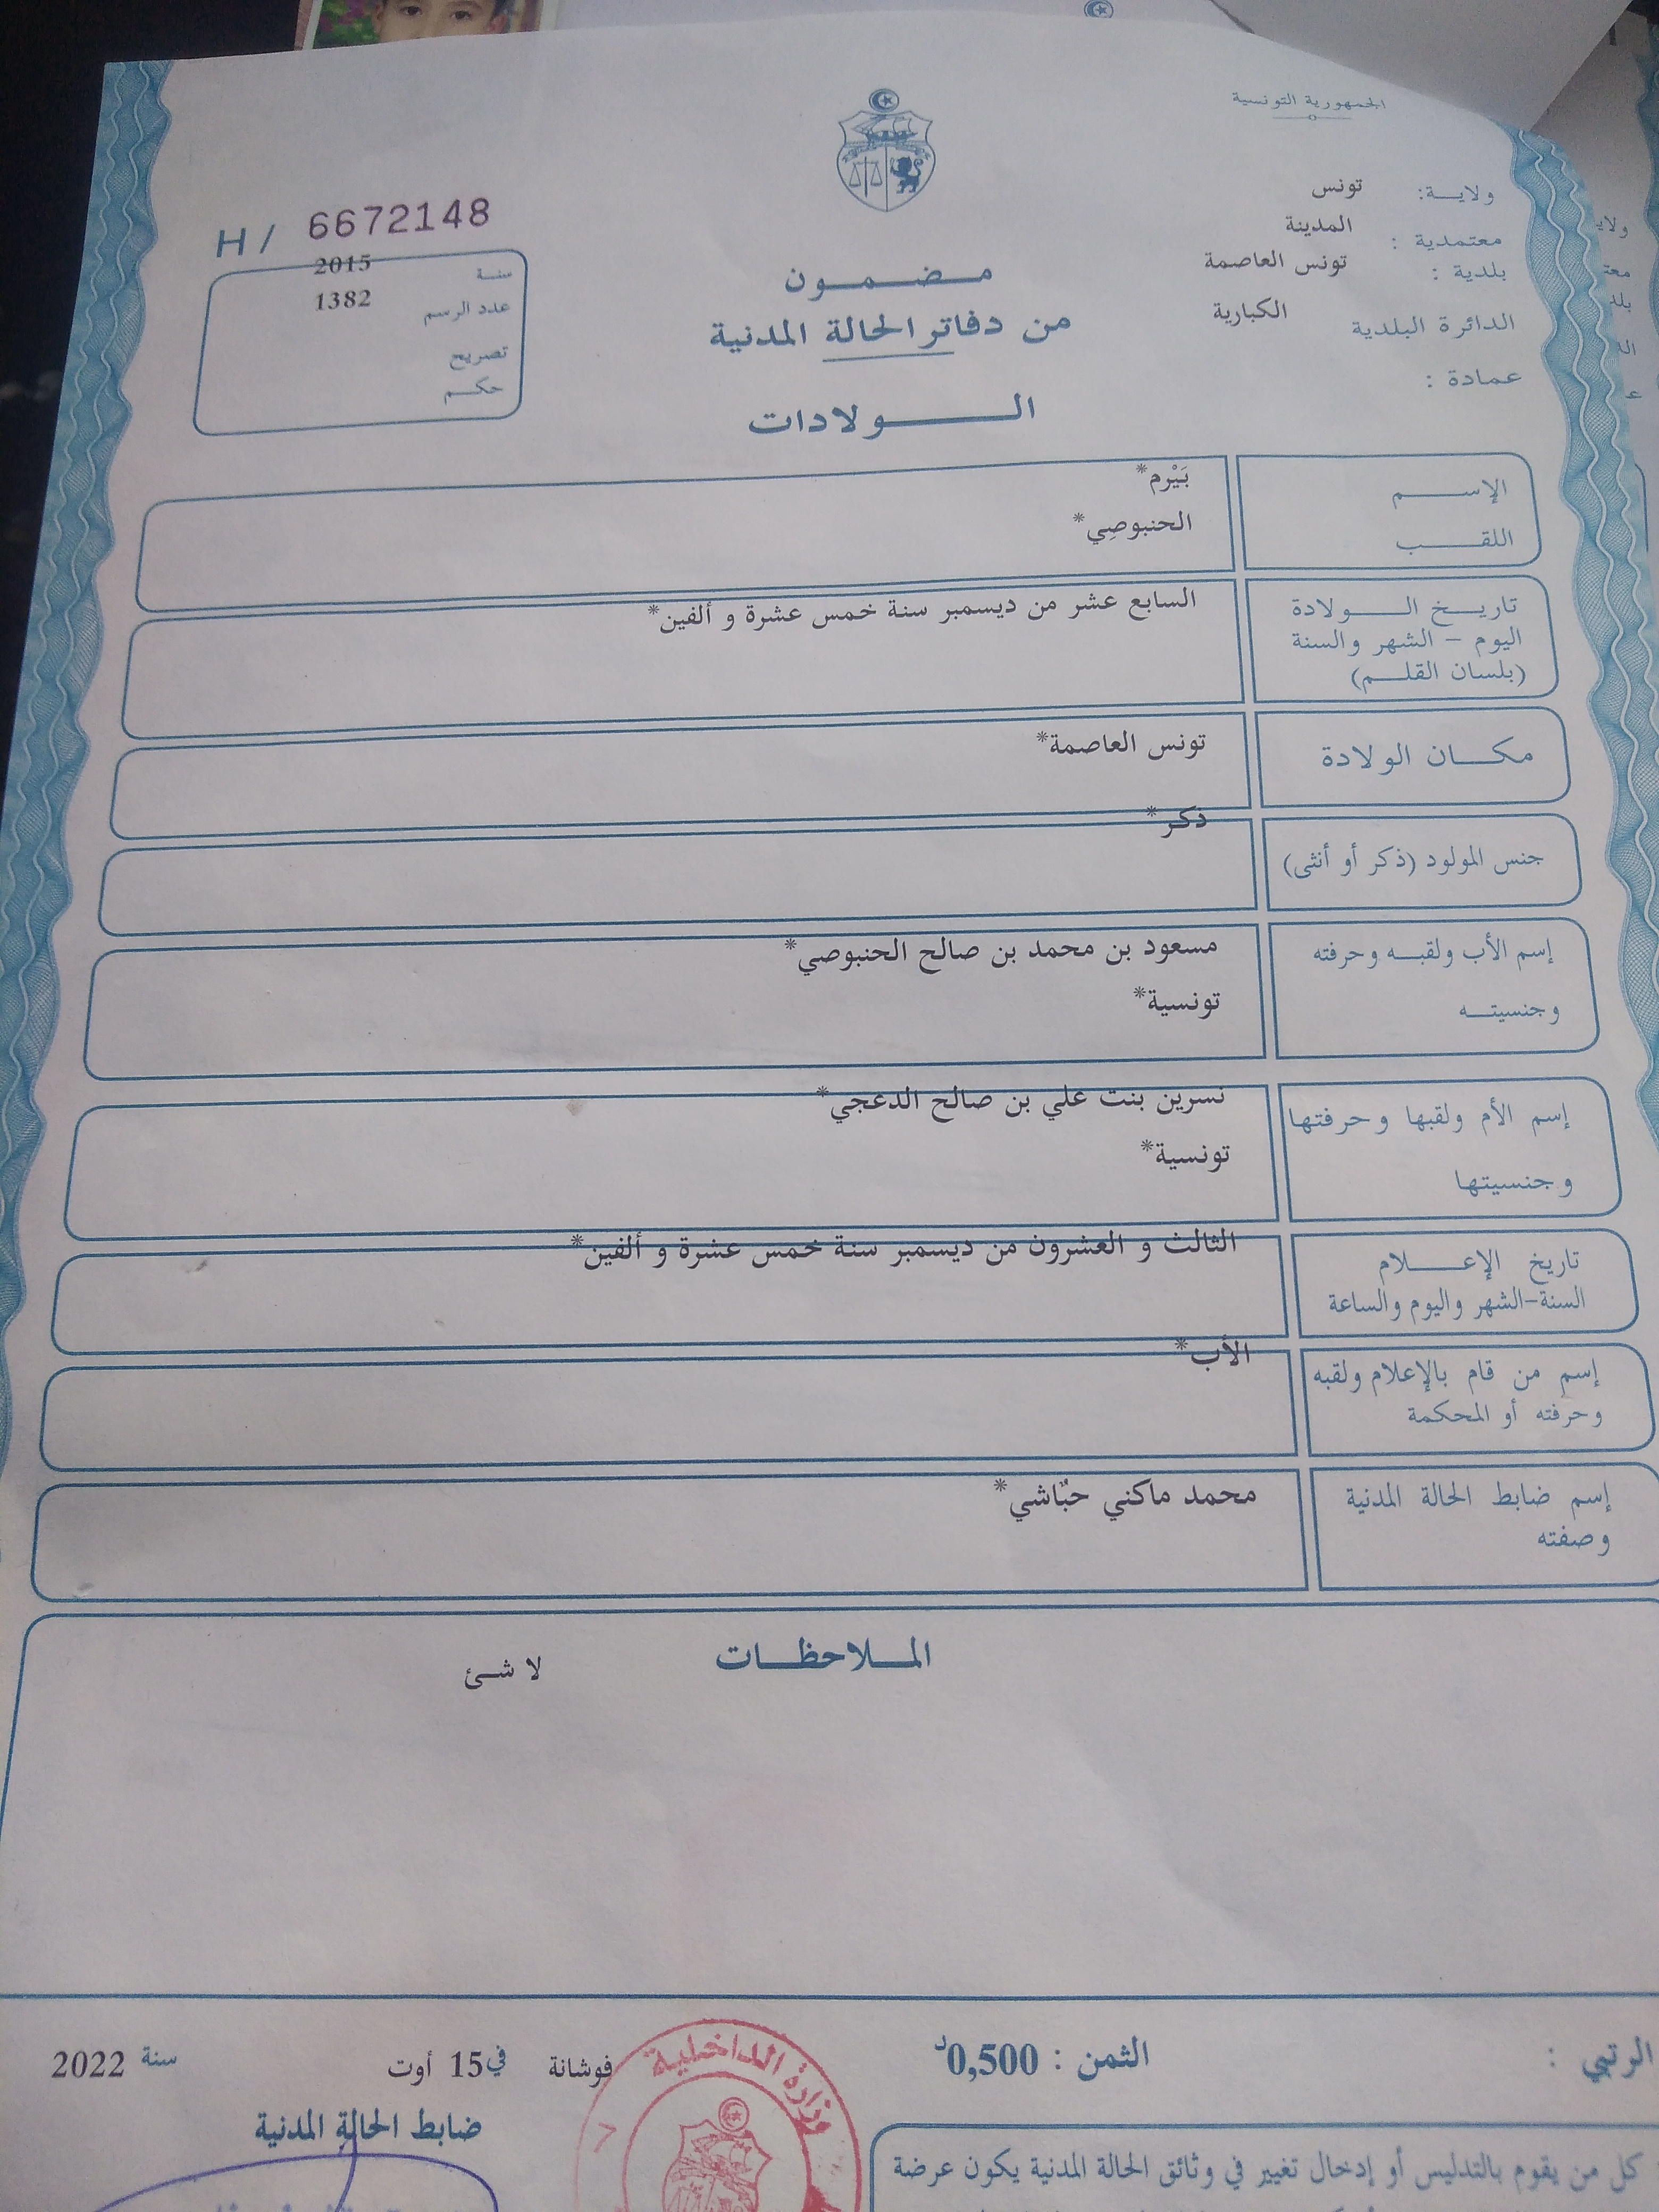 الجمهورية التونسية
ولاية: تونس
معتمدية : المدينة
بلدية : تونس العاصمة
الدائرة البلدية الكبارية
عمادة :
مضمون
من دفاتر الحالة المدنية
الولادات
H / 6672148
سنة 2015
عدد الرسم 1382
تصريح
حكم
الإسم بَيْرم*
اللقب الحنبوصِي*
تاريخ الولادة السابع عشر من ديسمبر سنة خمس عشرة و ألفين*
اليوم - الشهر والسنة
(بلسان القلم)
مكان الولادة تونس العاصمة*
جنس المولود (ذكر أو أنثى) ذكر*
إسم الأب ولقبه وحرفته مسعود بن محمد بن صالح الحنبوصي*
وجنسيته تونسية*
إسم الأم ولقبها وحرفتها نسرين بنت علي بن صالح الدعجي*
وجنسيتها تونسية*
تاريخ الإعلام الثالث و العشرون من ديسمبر سنة خمس عشرة و ألفين*
السنة-الشهر واليوم والساعة
إسم من قام بالإعلام ولقبه الأب*
وحرفته أو المحكمة
إسم ضابط الحالة المدنية محمد ماكني حبّاشي*
وصفته
الملاحظات
لا شئ
الرتبي :
الثمن : 0,500د
فوشانة في 15 أوت سنة 2022
ضابط الحالة المدنية
وزارة الداخلية
كل من يقوم بالتدليس أو إدخال تغيير في وثائق الحالة المدنية يكون عرضة